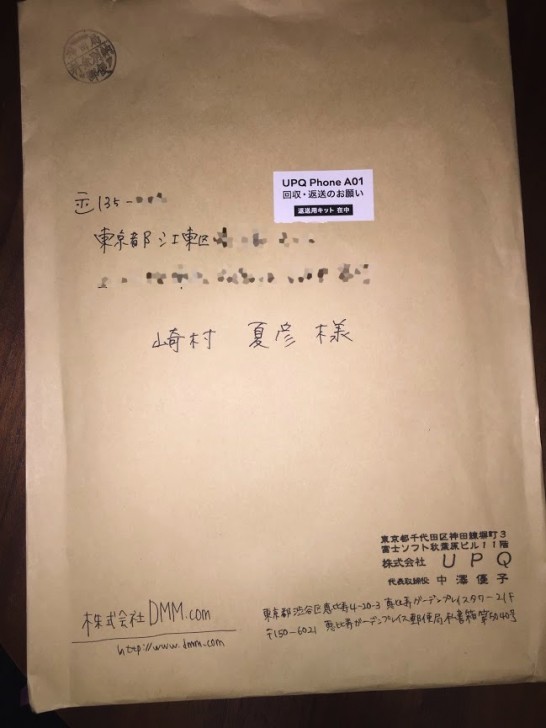 UPQ Phone A01
回収・返送のお願い
返送用キット 在中
〒135-
東京都江東区
崎村 夏彦 様
東京都千代田区神田練塀町3
富士ソフト秋葉原ビル11階
株式会社 UPQ
代表取締役 中澤優子
株式会社DMM.com
http://www.dmm.com
東京都渋谷区恵比寿4-20-3 恵比寿ガーデンプレイスタワー21F
〒150-6021 恵比寿ガーデンプレイス郵便局私書箱第5040号